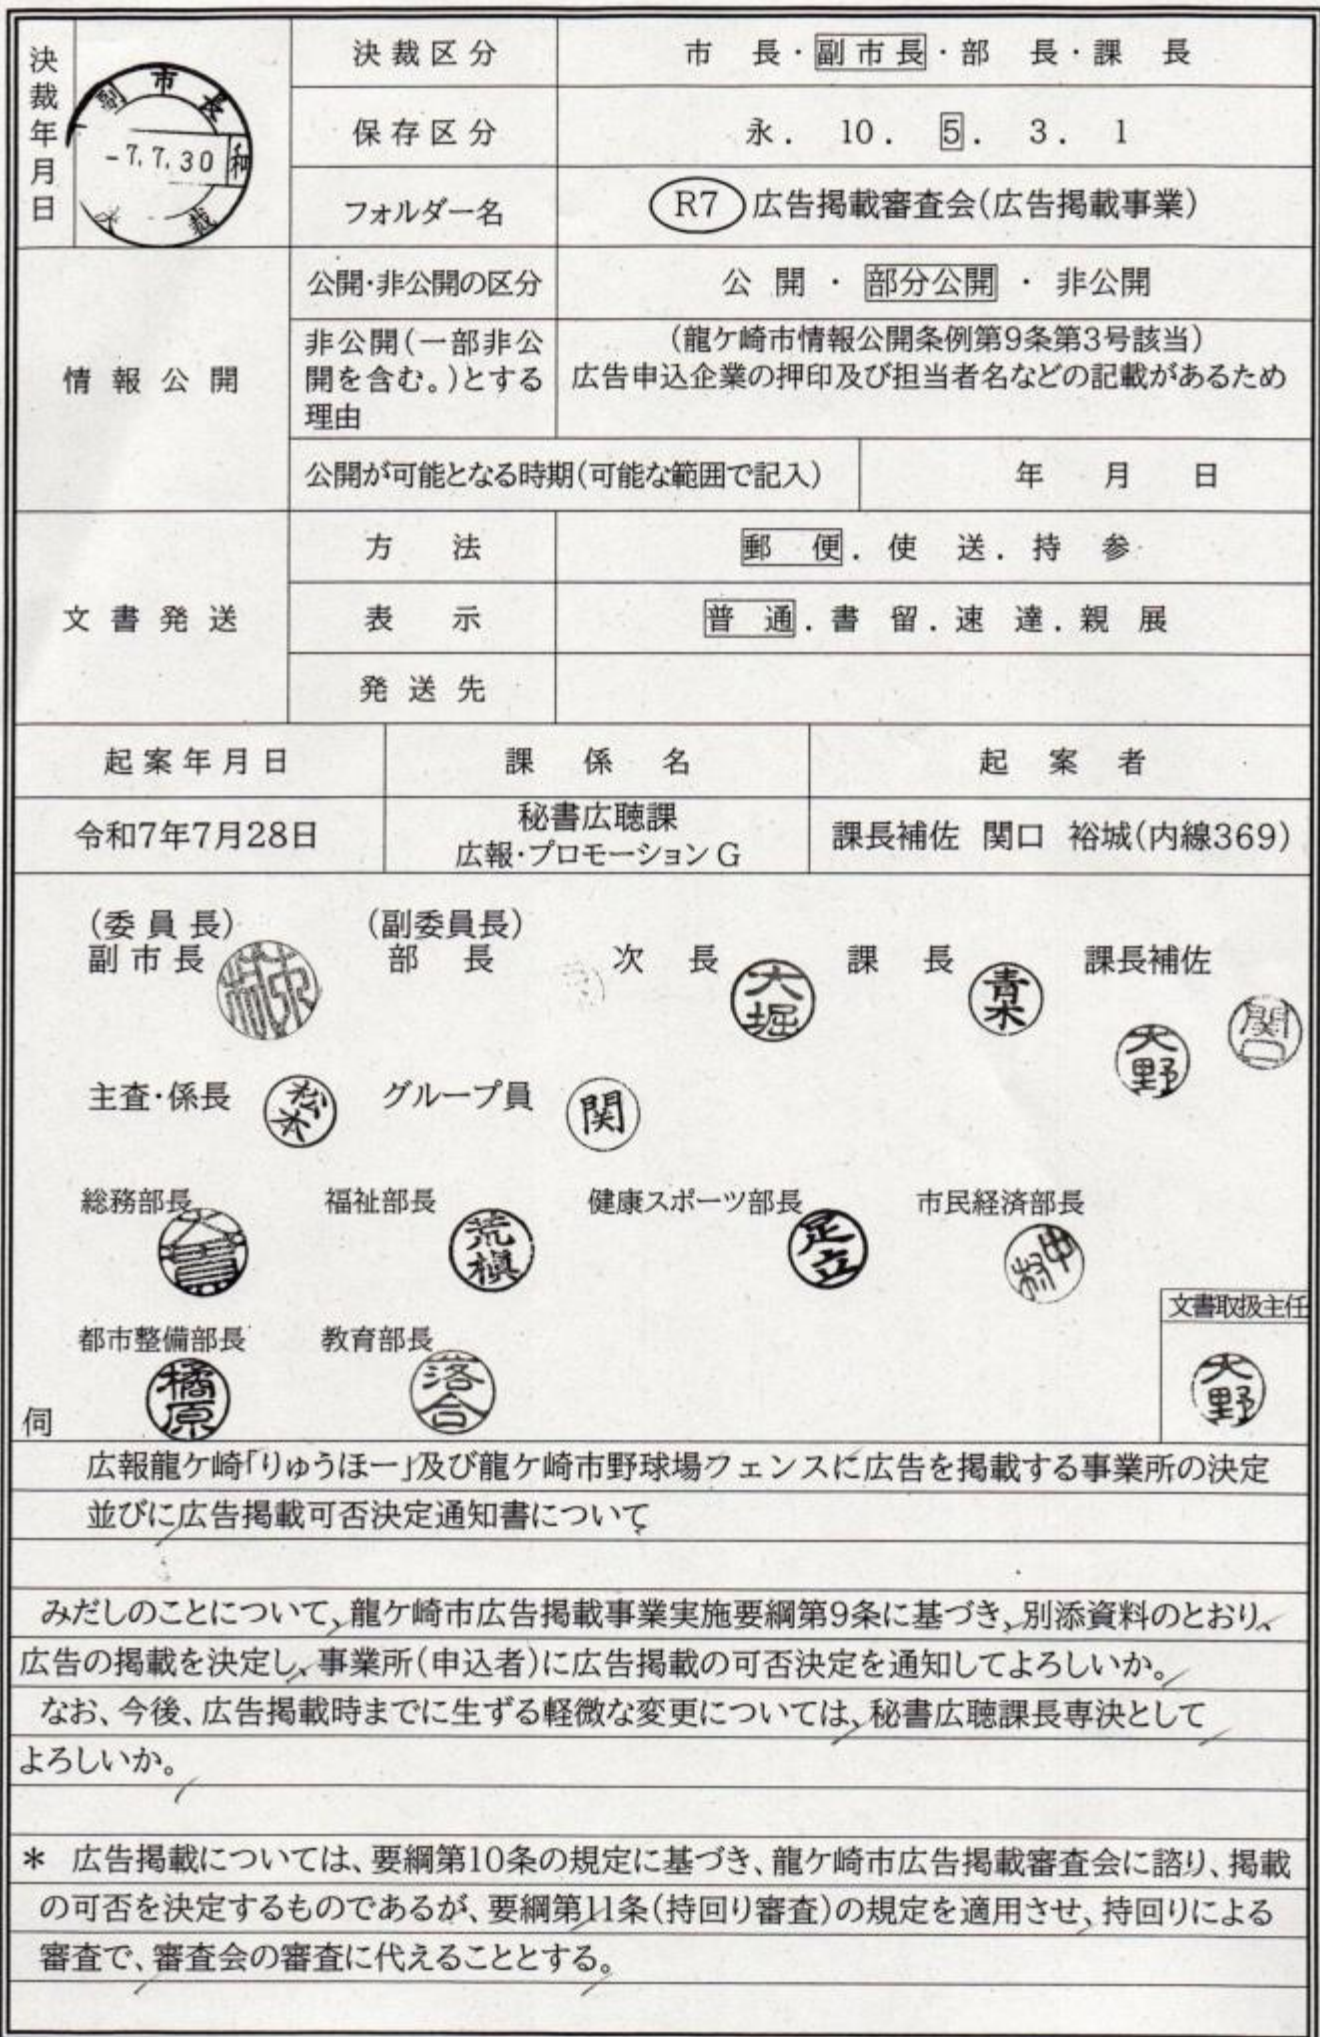 決裁年月日
副市長
-7.7.30
決裁区分
市 長・副市長・部 長・課 長
保存区分
永. 10. 5. 3. 1
フォルダー名
R7 広告掲載審査会(広告掲載事業)
情報公開
公開・非公開の区分
公 開 ・ 部分公開 ・ 非公開
非公開(一部非公
開を含む。)とする
理由
(龍ケ崎市情報公開条例第9条第3号該当)
広告申込企業の押印及び担当者名などの記載があるため
公開が可能となる時期(可能な範囲で記入)
年 月 日
文書発送
方 法
郵 便. 使 送. 持 参
表 示
普 通. 書 留. 速 達. 親 展
発送先
起案年月日
課 係 名
起 案 者
令和7年7月28日
秘書広聴課
広報・プロモーションG
課長補佐 関口 裕城(内線369)
(委員長) (副委員長)
副市長 部 長 次 長 大堀 課 長 青木 課長補佐 大野 関口
主査・係長 松本 グループ員 関
総務部長 福祉部長 荒槇 健康スポーツ部長 足立 市民経済部長 中村
都市整備部長 橘原 教育部長 落合
文書取扱主任
大野
伺
広報龍ケ崎「りゅうほー」及び龍ケ崎市野球場フェンスに広告を掲載する事業所の決定
並びに広告掲載可否決定通知書について
みだしのことについて、龍ケ崎市広告掲載事業実施要綱第9条に基づき、別添資料のとおり、
広告の掲載を決定し、事業所(申込者)に広告掲載の可否決定を通知してよろしいか。
なお、今後、広告掲載時までに生ずる軽微な変更については、秘書広聴課長専決として
よろしいか。
* 広告掲載については、要綱第10条の規定に基づき、龍ケ崎市広告掲載審査会に諮り、掲載
の可否を決定するものであるが、要綱第11条(持回り審査)の規定を適用させ、持回りによる
審査で、審査会の審査に代えることとする。